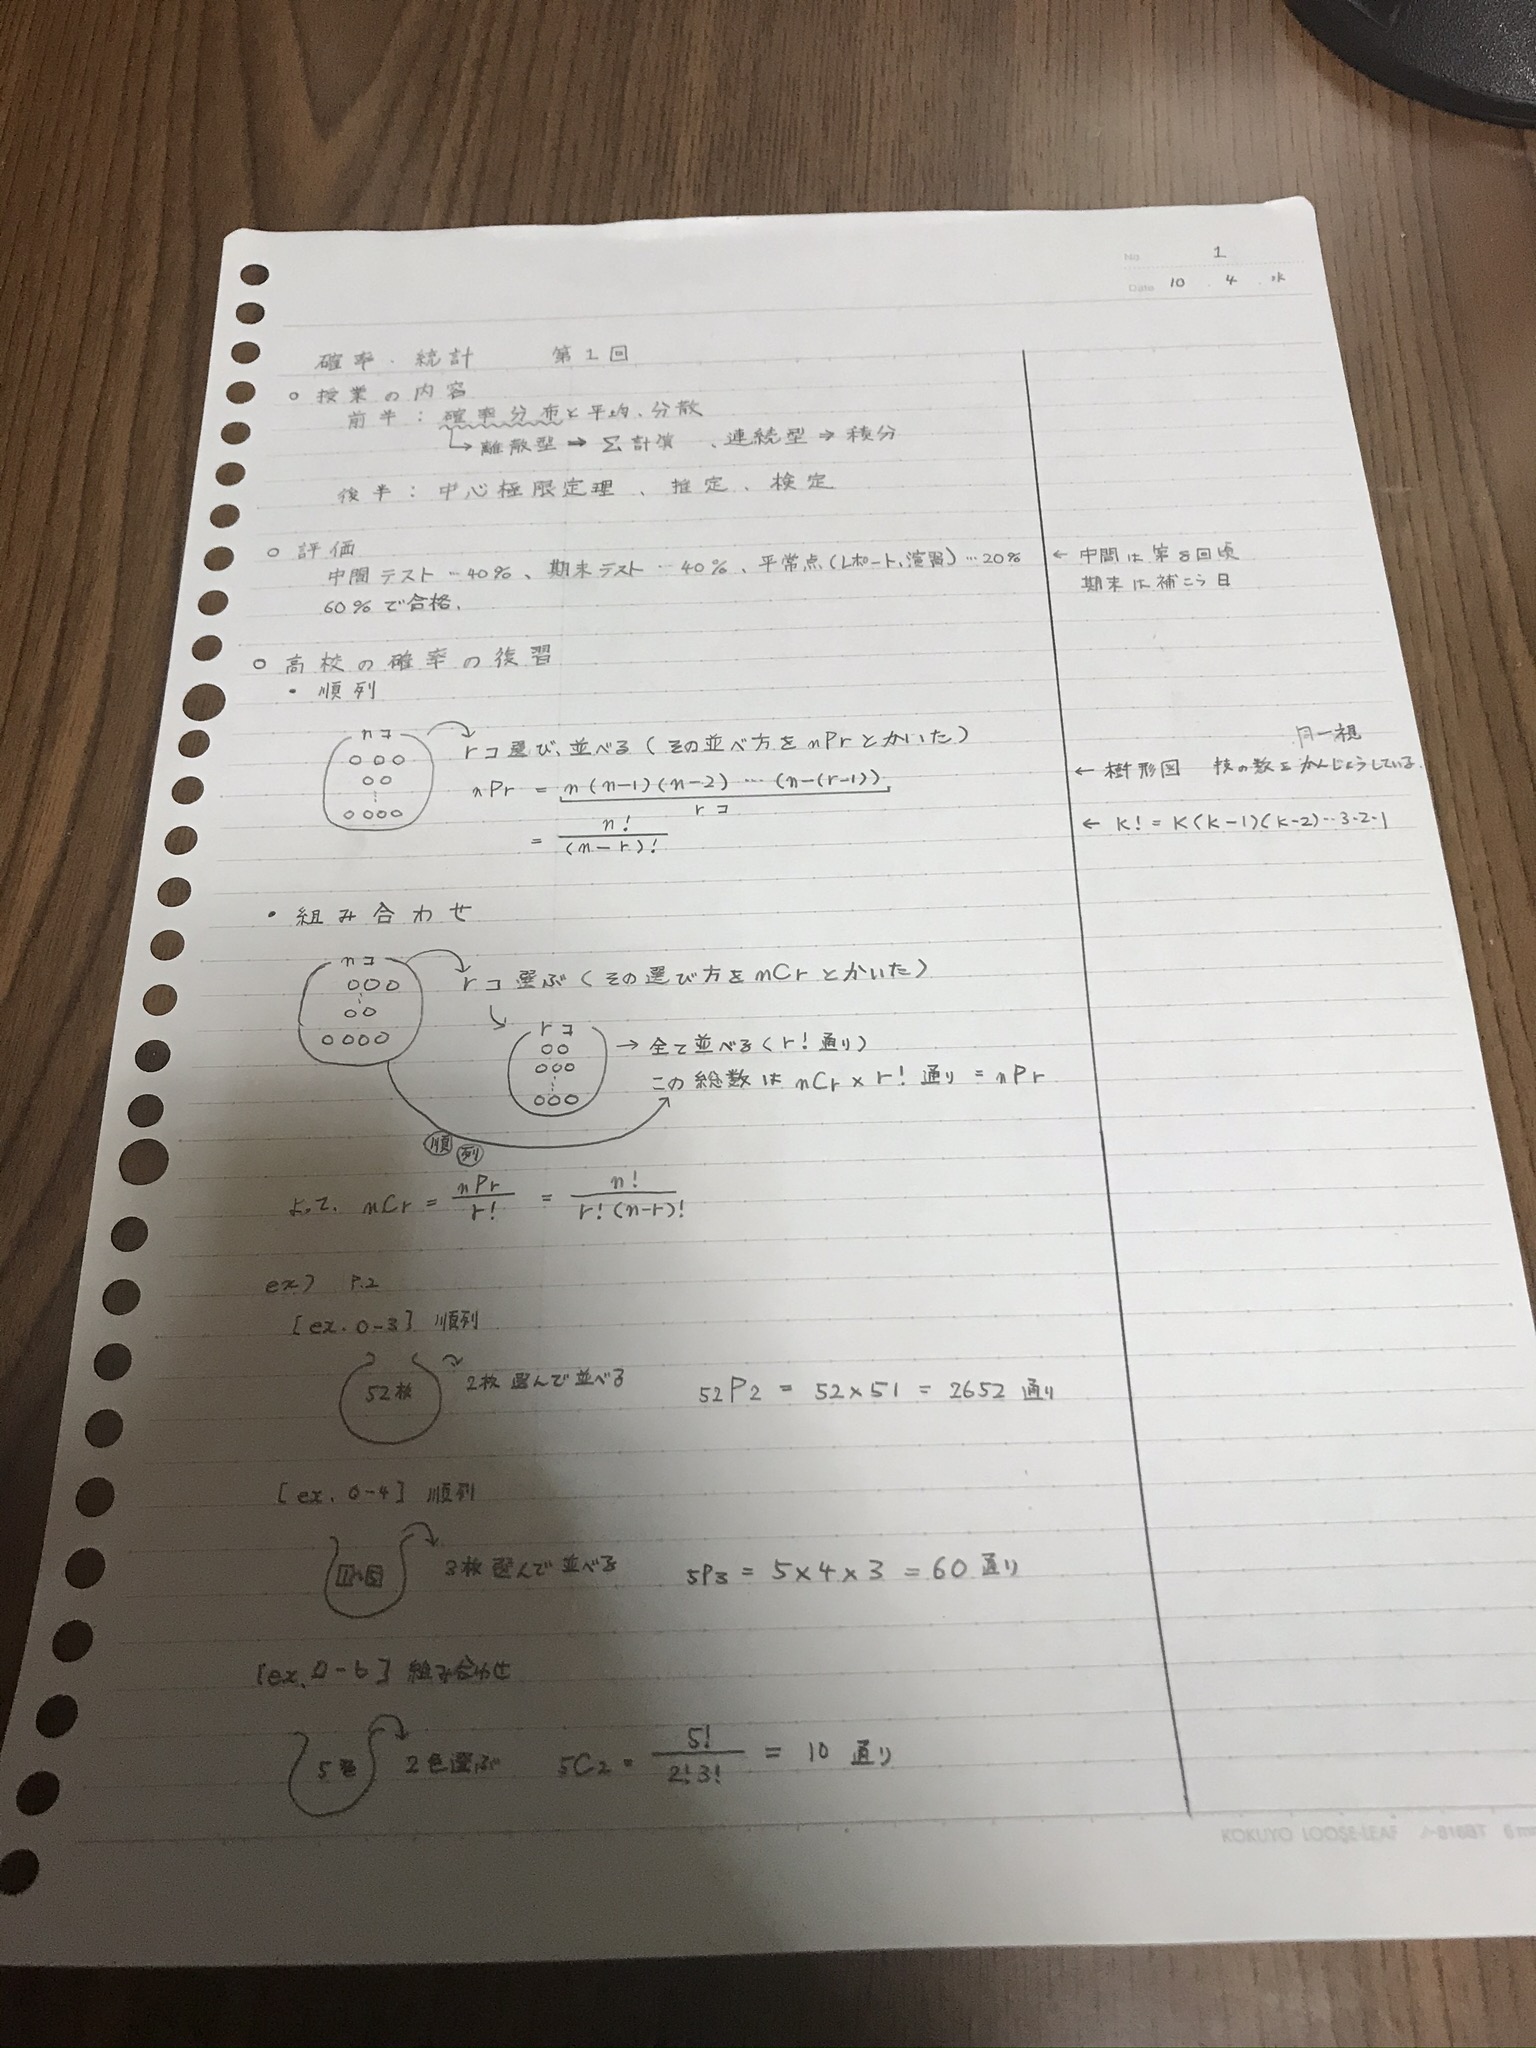 No. 1
Date 10 . 4 . 水
確率・統計 第1回
○ 授業の内容
前半：確率分布と平均、分散
↳ 離散型 ⇒ Σ計算 、連続型 ⇒ 積分
後半：中心極限定理、推定、検定
○ 評価
中間テスト…40%、期末テスト…40%、平常点(レポート、演習)…20%
60%で合格.
← 中間は第8回頃
期末は補こう日
○ 高校の確率の復習
・順列
nコ
rコ選び、並べる(その並べ方をnPrとかいた)
nPr = n(n-1)(n-2)…(n-(r-1))
rコ
= n!/(n-r)!
同一視
← 樹形図 枝の数をかんじょうしている.
← K! = K(K-1)(K-2)…3・2・1
・組み合わせ
nコ
rコ選ぶ(その選び方をnCrとかいた)
rコ
→ 全て並べる(r!通り)
この総数は nCr × r! 通り = nPr
順列
よって. nCr = nPr/r! = n!/r!(n-r)!
ex) P.2
[ex. 0-3] 順列
52枚
2枚選んで並べる 52P2 = 52×51 = 2652 通り
[ex. 0-4] 順列
3枚選んで並べる 5P3 = 5×4×3 = 60 通り
[ex. 0-6] 組み合わせ
5色
2色選ぶ 5C2 = 5!/2!3! = 10 通り
KOKUYO LOOSE-LEAF